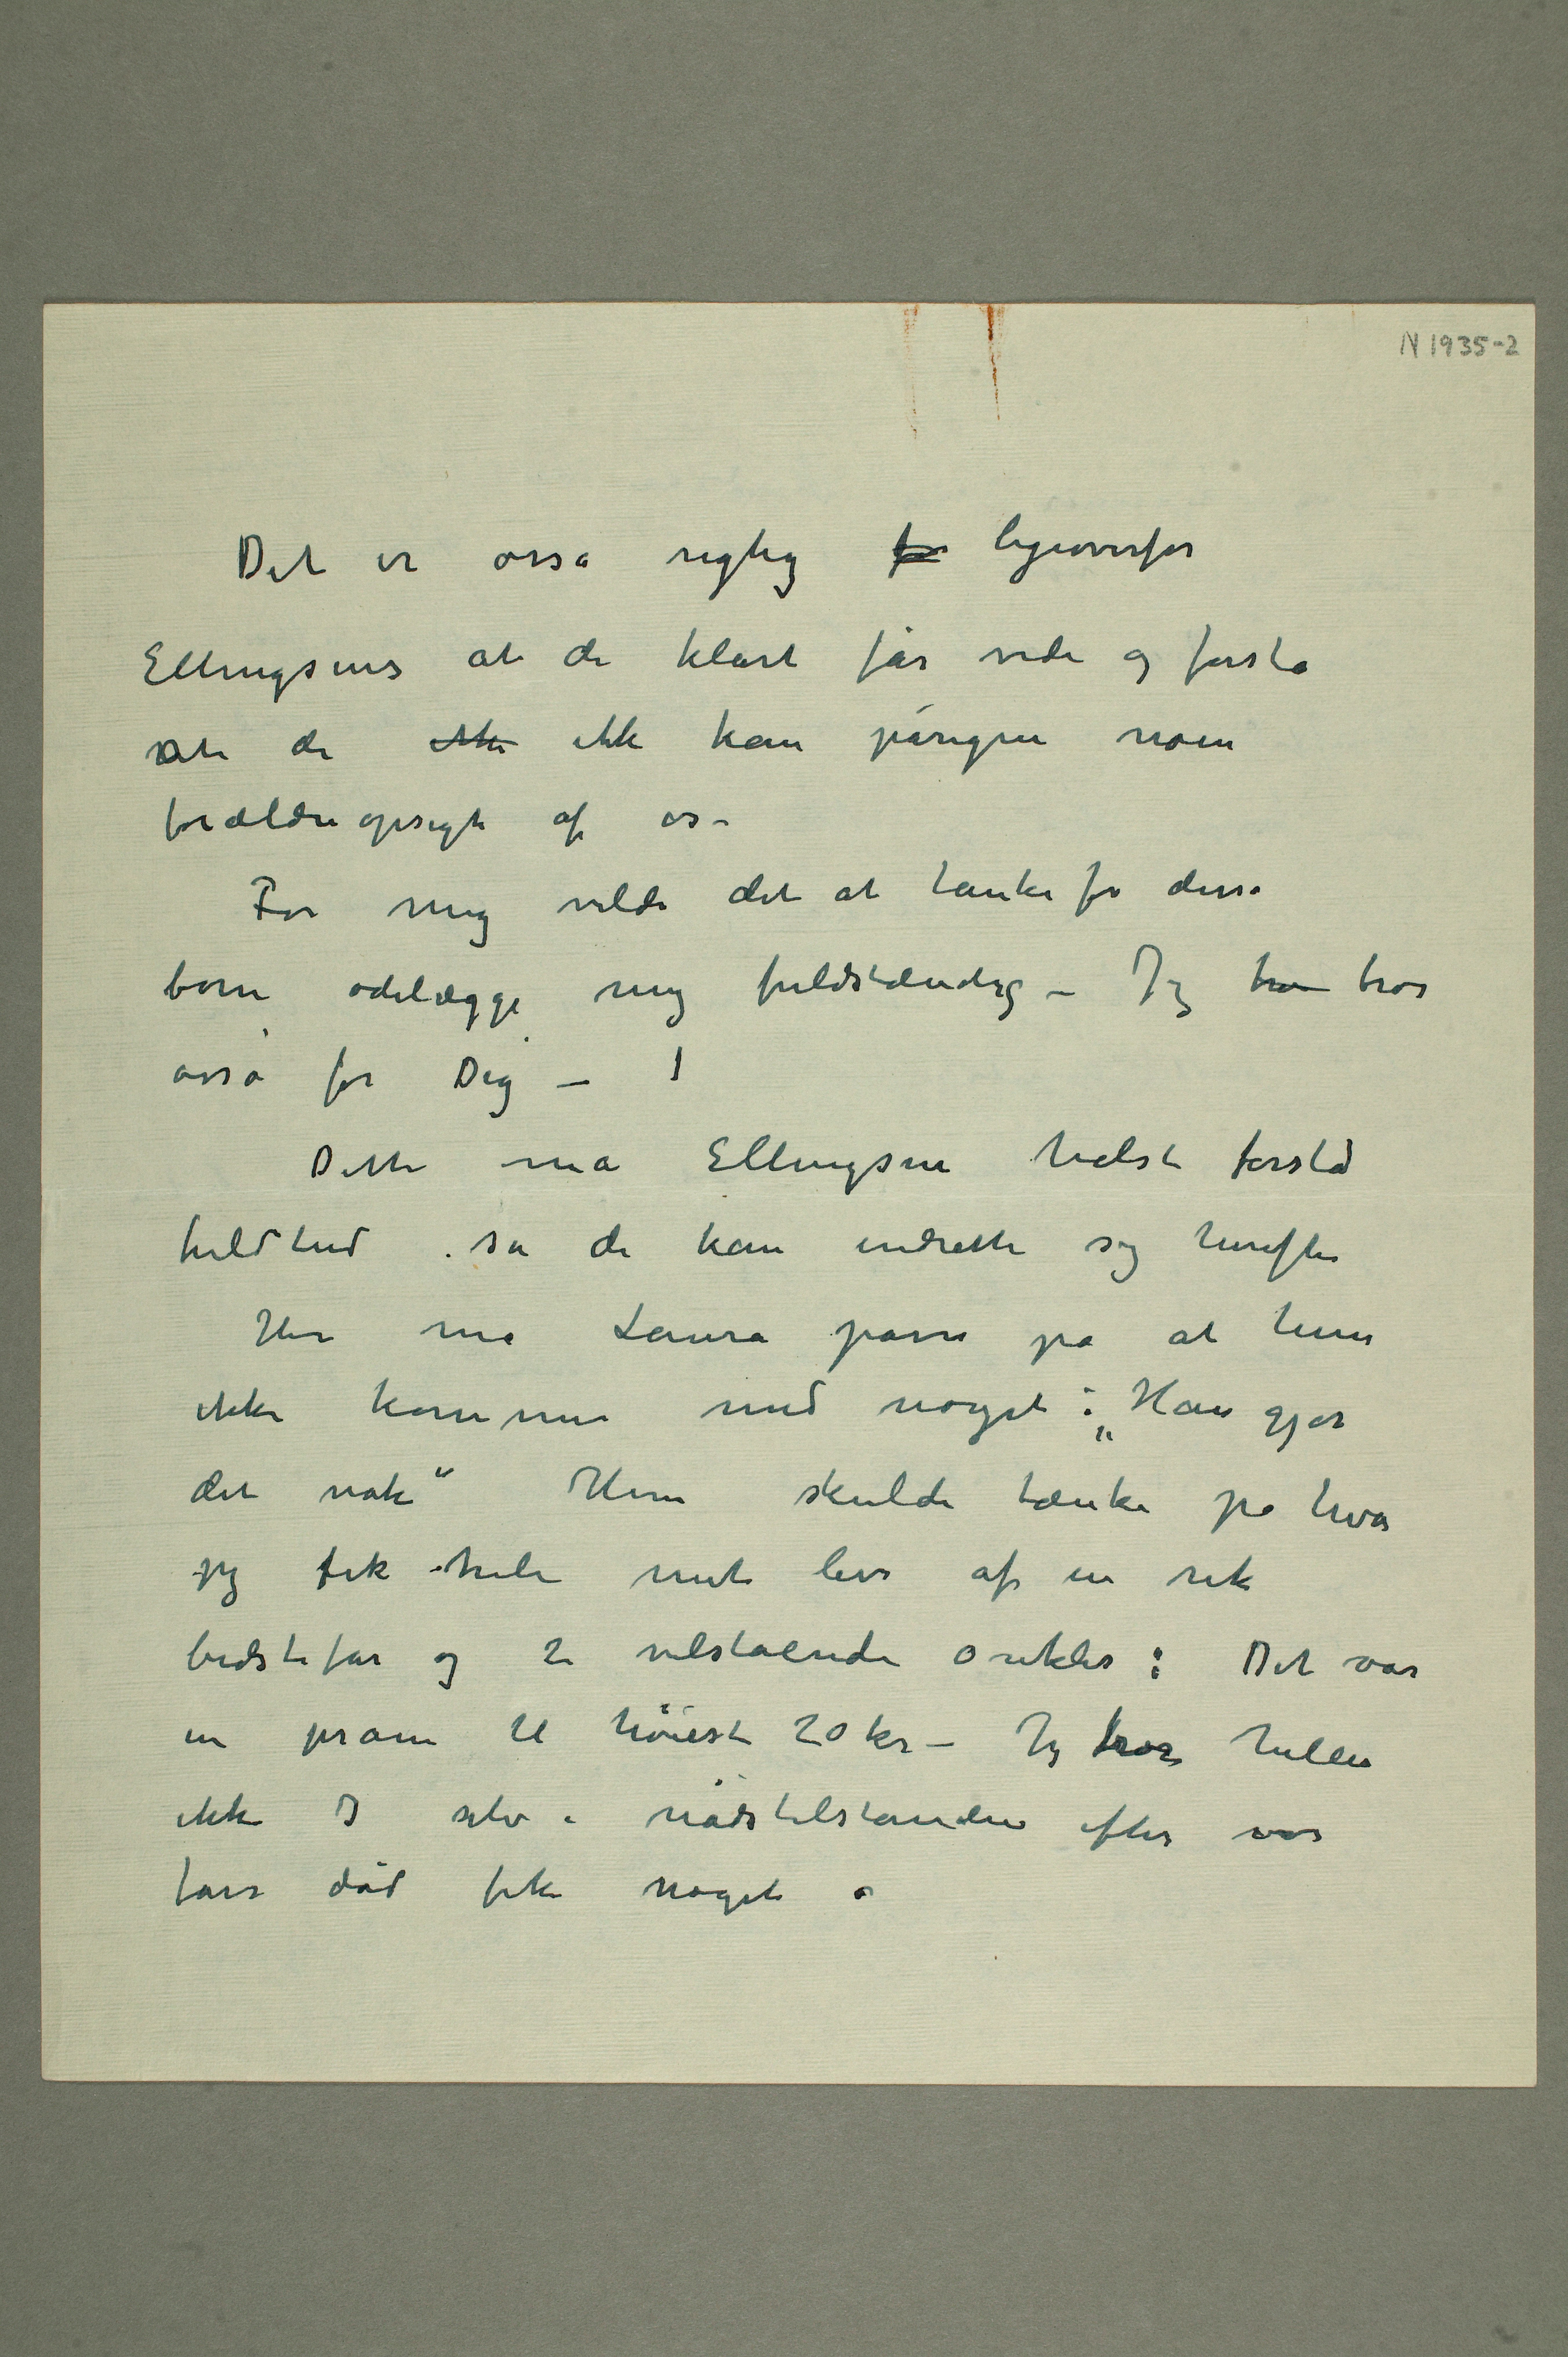 N 1935-2
Det er osså rigtig for ligeoverfor
Ellingsens at de klart får vide og forstå
at de ikke ikke kan påregne noen
forældreopsigt af os –
For mig vilde det at tænke for disse
børn ødelægge mig fuldstændig – Jeg tro tror
osså for Dig – !
Dette må Ellingsen helst forstå
fuldtud så de kan indrette sig herefter
Her må Laura passe på at hun
ikke kommer med noget: „Han gjør
det nok“ Hun skulde tænke på hva
jeg fik hele mit liv af en rik
bedstefar og 2 velstående onkler: Det var
en pram til høiest 20 kr – Jeg tror heller
ikke I selv i nødstilstanden efter vor
fars død fik noget